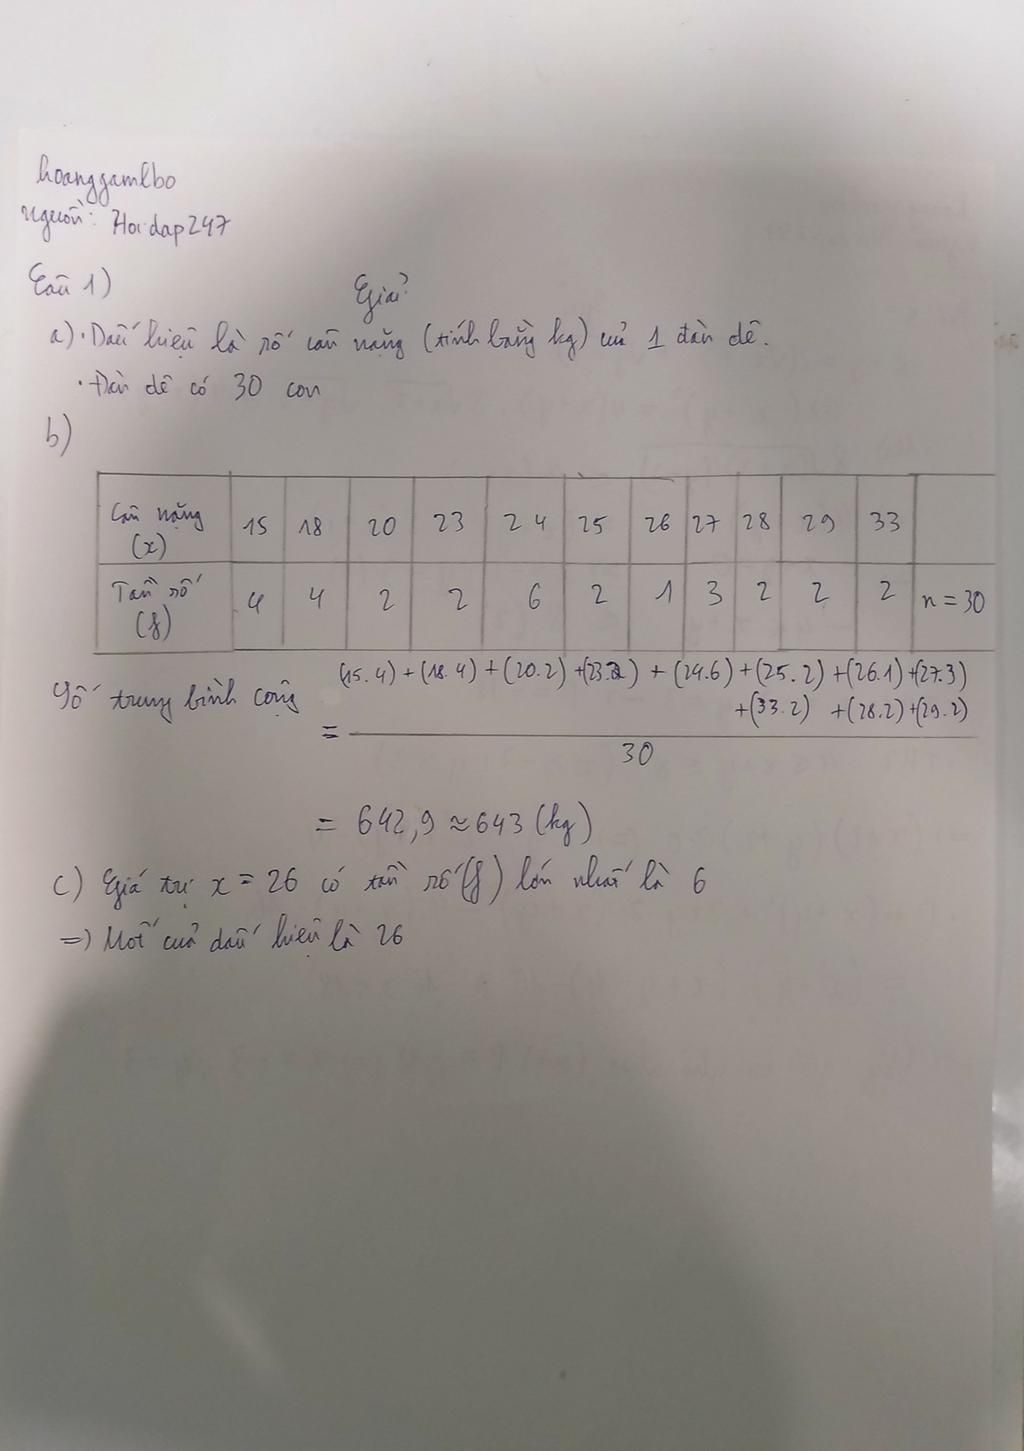 hoanggamlbo
Nguồn: Hoidap247
Câu 1)
Giải
a) · Dấu hiệu là số cân nặng (tính bằng kg) của 1 đàn dê.
· Đàn dê có 30 con
b)
Cân nặng (x) 15 18 20 23 24 25 26 27 28 29 33
Tần số (f) 4 4 2 2 6 2 1 3 2 2 2 n = 30
Số trung bình cộng
(15.4) + (18.4) + (20.2) + (23.2) + (24.6) + (25.2) + (26.1) + (27.3)
+ (33.2) + (28.2) + (29.2)
=
30
= 642,9 ≈ 643 (kg)
c) Giá trị x = 26 có tần số (f) lớn nhất là 6
=) Mốt của dấu hiệu là 26